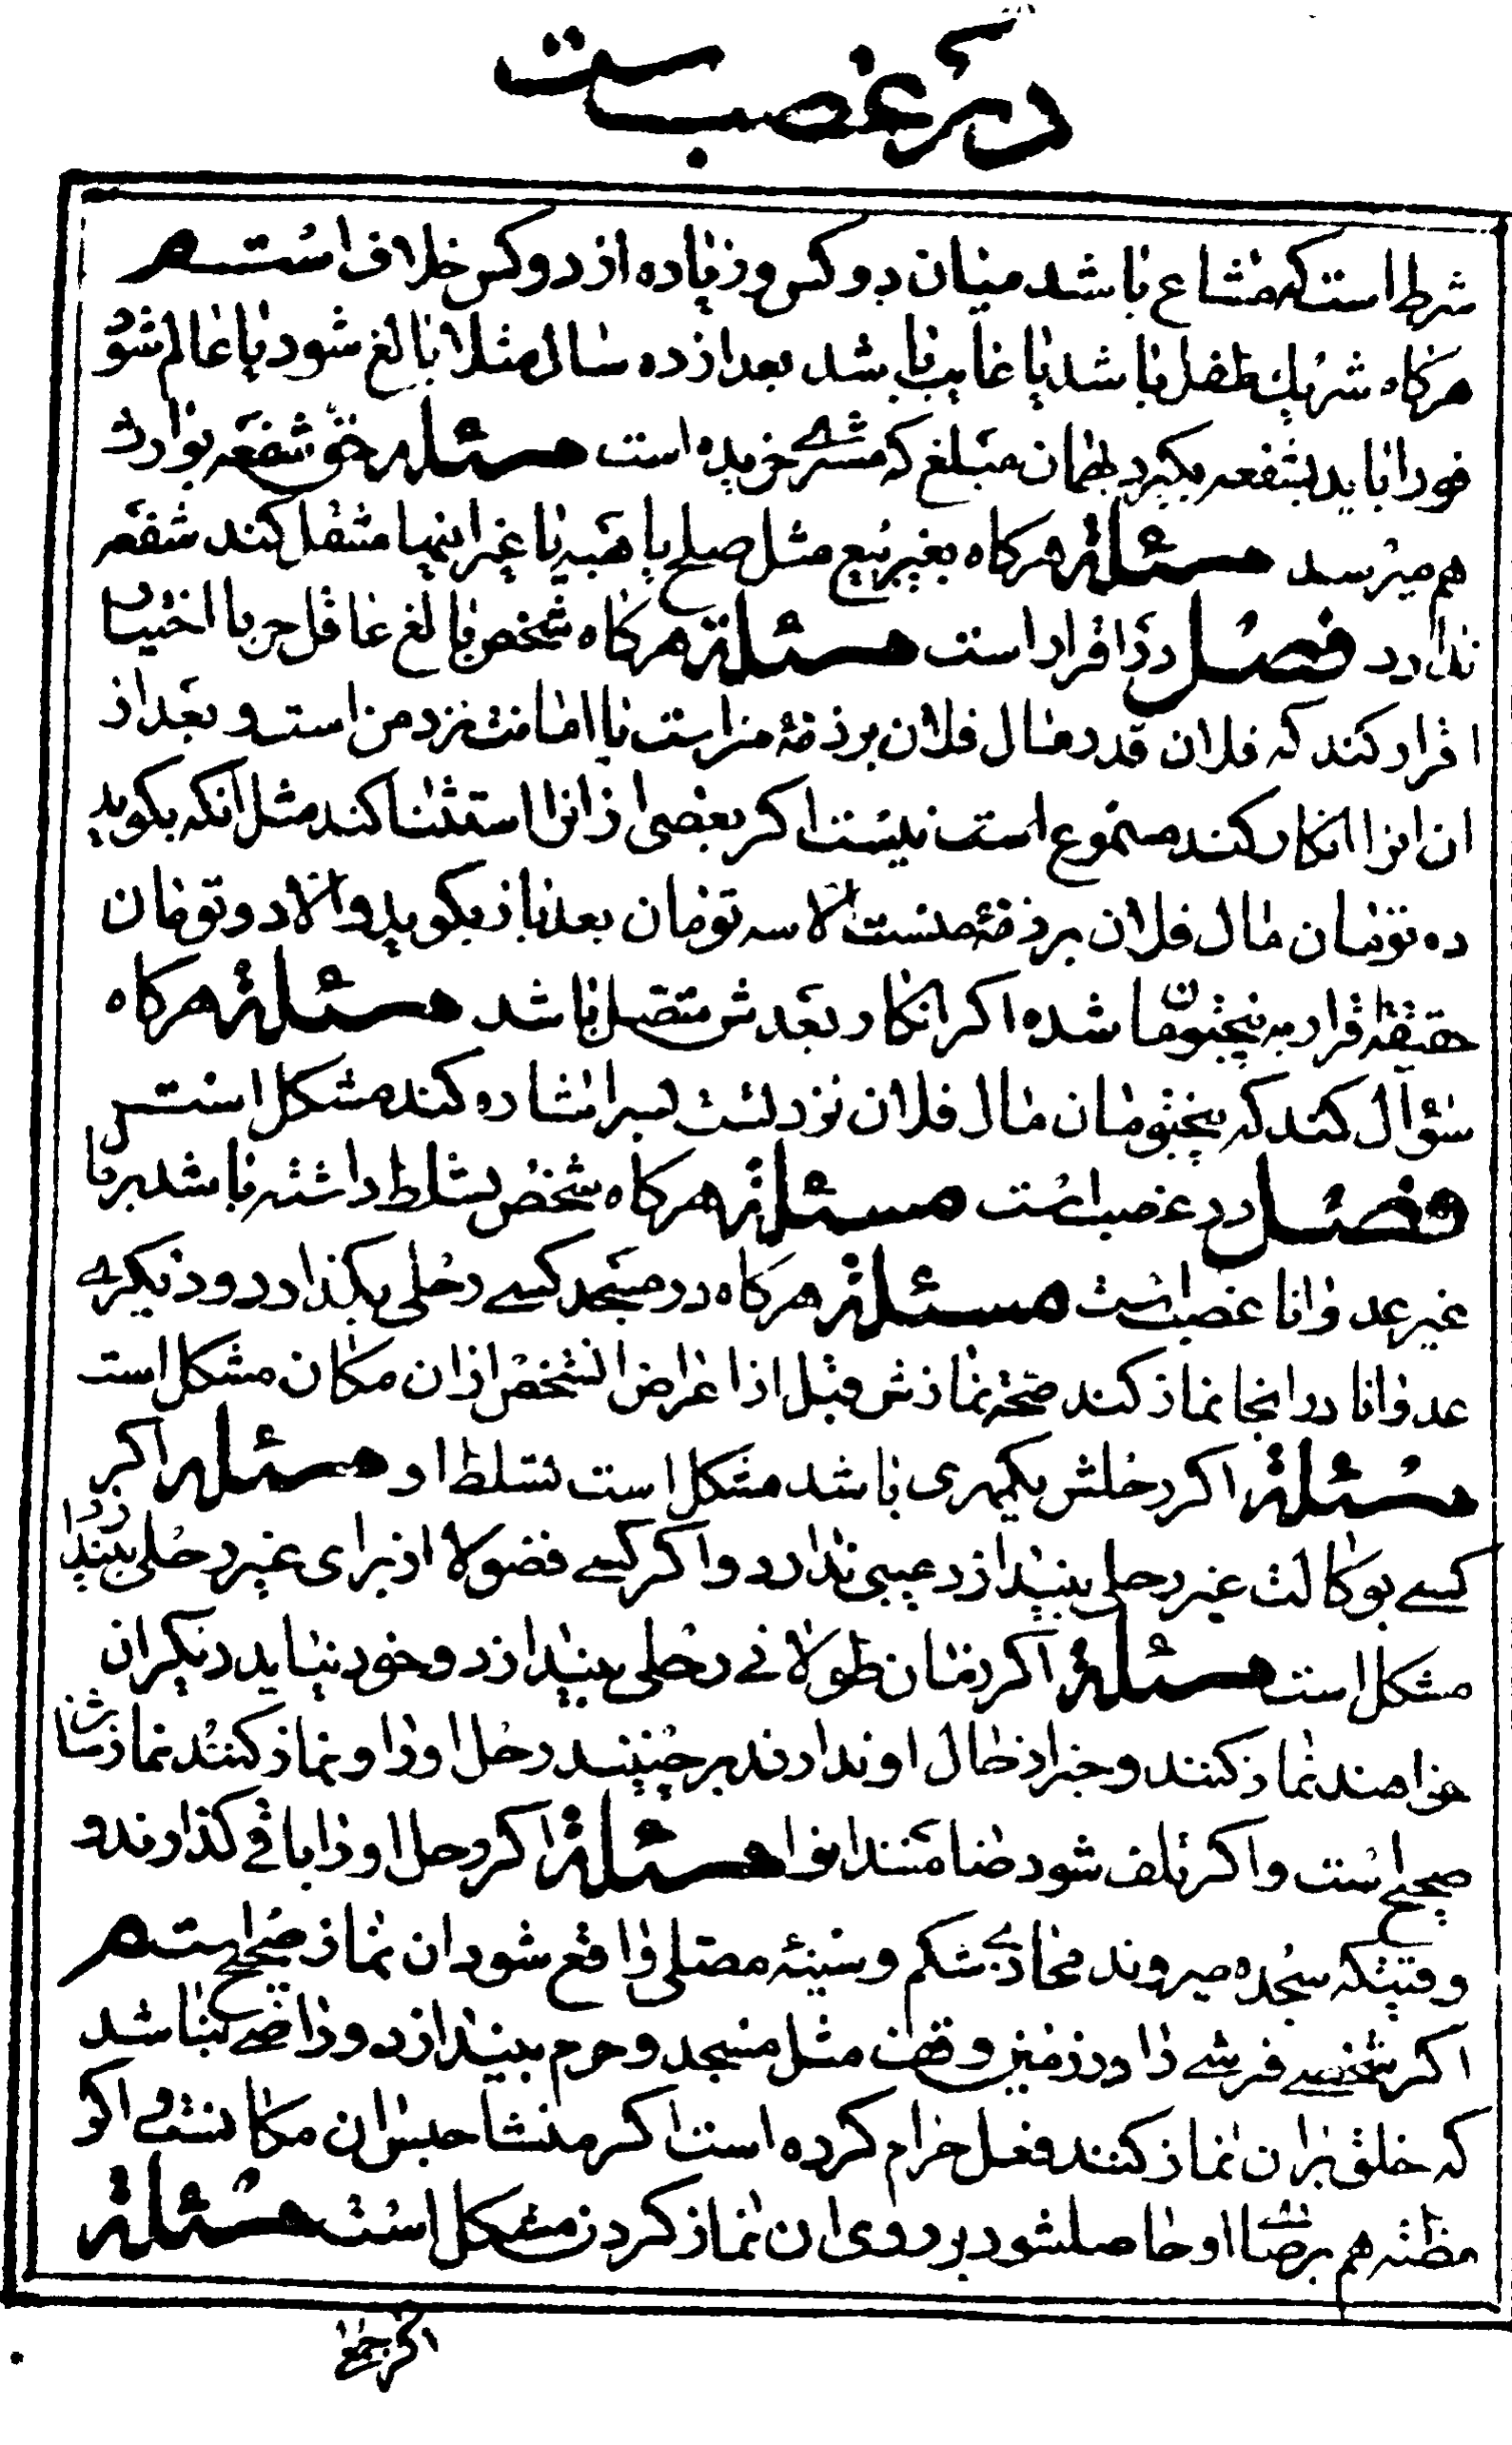 در غصب است
شرط است که مشاع باشد میان دو کس و زیاده از دو کس خلاف است م
هرکاه شریک طفل باشد یا غایب باشد بعد از ده سال مثلا بالغ شود یا عالم شود
فورا باید بشفعه بکیرد بهمان مبلغ که مشتری خریده است مسئله حق شفعه بوارث
هم میرسد مسئلة هرکاه بغیر بیع مثل صلح یا هبه یا غیر اینها منتقل کند شفعه
ندارد فصل در اقرار است مسئلة هرکاه شخص بالغ عاقل حر با اختیار
اقرار کند که فلان قدر مال فلان بر ذمّهٔ من است یا امانت نزد من است و بعد از
ان انرا انکار کند مسموع است نیست اکر بعضی از انرا استثنا کند مثل انکه بکوید
ده تومان مال فلان بر ذمّهٔ منست الّا سه تومان بعد باز بکوید والّا دو تومان
حقیقة اقرار به پنجتومان شده اکر انکار بعدش متصل باشد مسئلة هرکاه
سؤال کند که پنجتومان مال فلان نزد تست بسر اشاره کند مشکل است
فصل در غصب است مسئلة هرکاه شخص تسلط داشته باشد بر مال
غیر عدوانا غصب است مسئلة هرکاه در مسجد کسے رحلی بکذارد و دیکرے
عدوانا در انجا نماز کند صحّة نمازش قبل از اعراض انشخص از ان مکان مشکل است
مسئلة اکر رحلش یکمهری باشد مشکل است تسلط او مسئله اکر
کسے بوکالت غیر رحلی بیندازد عیبی ندارد و اکر کسے فضولا از برای غیر رحلی بیندازد
مشکل است مسئلة اکر زمان طولانے رحلی بیندازد و خود نیاید دیکران
خواهند نماز کنند و خبر از حال او ندارند بر چینند رحل او را و نماز کنند نمازشان
صحیح است و اکر تلف شود ضامنند انرا مسئلة اکر رحل او را باقے کذارند و
وقتیکه سجده میروند محاذے شکم و سینهٔ مصلی واقع شود ان نماز صحیح است م
اکر شخصے فرشے را در زمین وقف مثل مسجد و حرم بیندازد و راضے نباشد
که خلق بران نماز کنند فعل حرام کرده است اکر منشا حبس ان مکانست و اکر
مظنه هم برضاے او حاصلشود بر روی ان نماز کردن مشکل است مسئلة
اکر جمعی